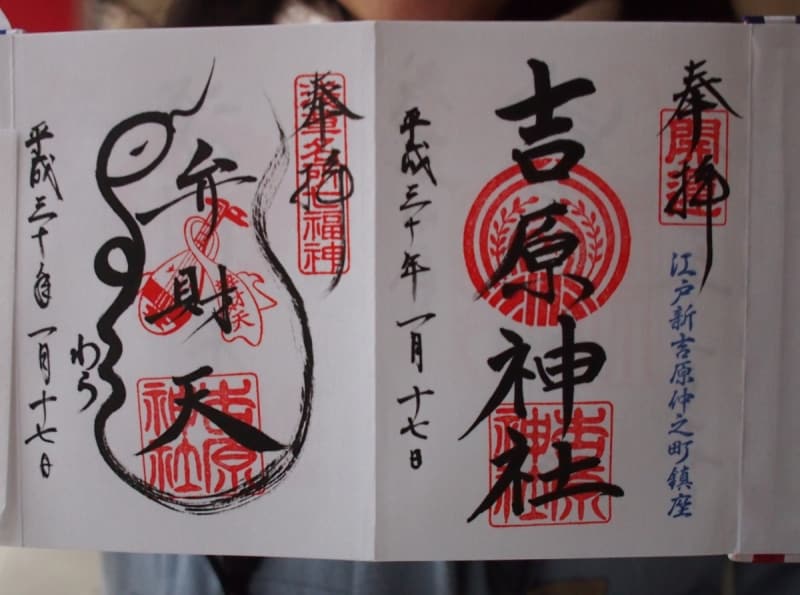 奉拝
開運
江戸新吉原仲之町鎮座
吉原神社
吉原神社
平成三十年一月十七日
奉拝
浅草名所七福神
弁財天
弁財天
吉原神社
わう
平成三十年一月十七日